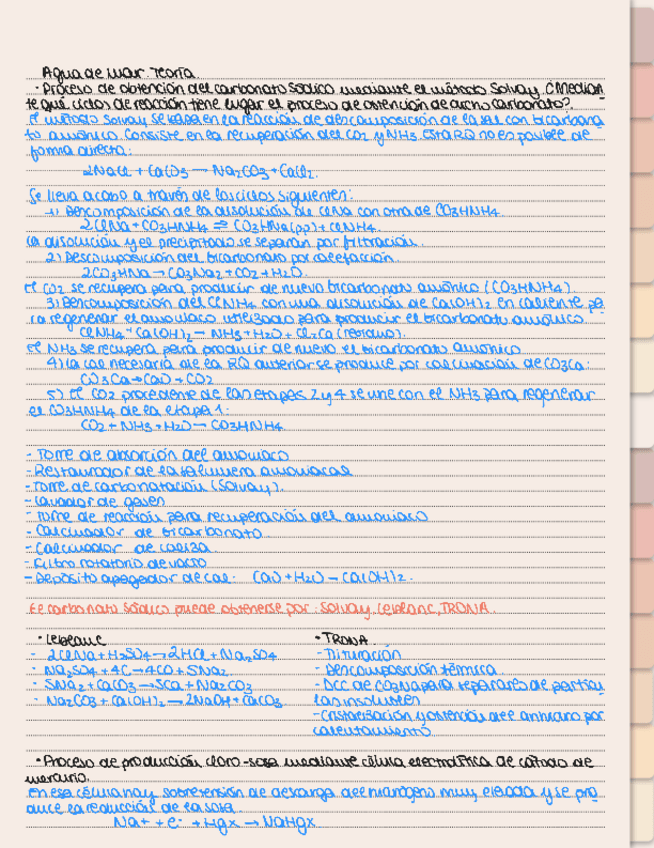 Agua de mar. Teoría.
· Proceso de obtención del carbonato sódico mediante el método Solvay. ¿Median
te qué ciclos de reacción tiene lugar el proceso de obtención de dicho carbonato?
El método Solvay se basa en la reacción de descomposición de la sal con bicarbona
to amónico. Consiste en la recuperación del CO2 y NH3. Esta RQ no es posible de
forma directa:
2NaCl + CaCO3 → Na2CO3 + CaCl2.
Se lleva a cabo a través de los ciclos siguientes:
1) Descomposición de la disolución de ClNa con otra de CO3HNH4.
2ClNa + CO3HNH4 ⇌ CO3HNa(pp) + ClNH4.
La disolución y el precipitado se separan por filtración.
2) Descomposición del bicarbonato por calefacción.
2CO3HNa → CO3Na2 + CO2 + H2O.
El CO2 se recupera para producir de nuevo bicarbonato amónico (CO3HNH4).
3) Descomposición del ClNH4 con una disolución de Ca(OH)2 en caliente pa
ra regenerar el amoniaco utilizado para producir el bicarbonato amónico.
ClNH4 + Ca(OH)2 → NH3 + H2O + Cl2Ca (residuo).
El NH3 se recupera para producir de nuevo el bicarbonato amónico
4) La cal necesaria de la RQ anterior se produce por calcinación de CO3Ca:
CO3Ca → CaO + CO2
5) El CO2 procedente de las etapas 2 y 4 se une con el NH3 para regenerar
el CO3HNH4 de la etapa 1:
CO2 + NH3 + H2O → CO3HNH4
- Torre de absorción del amoniaco
- Restaurador de la salmuera amoniacal
- Torre de carbonatación (Solvay).
- Lavador de gases
- Torre de reacción para recuperación del amoniaco
- Calcinador de bicarbonato
- Calcinador de caliza
- Filtro rotatorio de vacío
- Depósito apagador de cal: CaO + H2O → Ca(OH)2.
El carbonato sódico puede obtenerse por: Solvay, Leblanc, TRONA.
· Leblanc
- 2ClNa + H2SO4 → 2HCl + Na2SO4
- Na2SO4 + 4C → 4CO + SNa2
- SNa2 + CaCO3 → SCa + Na2CO3
- Na2CO3 + Ca(OH)2 → 2NaOH + CaCO3
· TRONA
- Trituración
- Descomposición térmica
- DCC de CO3Na para separarlos de partícu
las insolubles
- Cristalización y obtención del anhidro por
calentamiento
· Proceso de producción cloro-sosa mediante célula electrolítica de cátodo de
mercurio.
En esa célula hay sobretensión de descarga del hidrógeno muy elevada y se pro
duce la reducción de la sosa.
Na+ + e- + Hgx → NaHgx